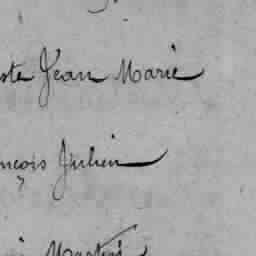 ste Jean Marie
nçois Julien